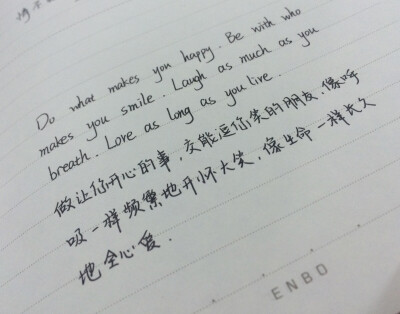 Do what makes you happy. Be with who
makes you smile. Laugh as much as you
breath. Love as long as you live.
做让你开心的事，交能逗你笑的朋友，像呼
吸一样频繁地开怀大笑，像生命一样长久
地全心爱．
ENBO